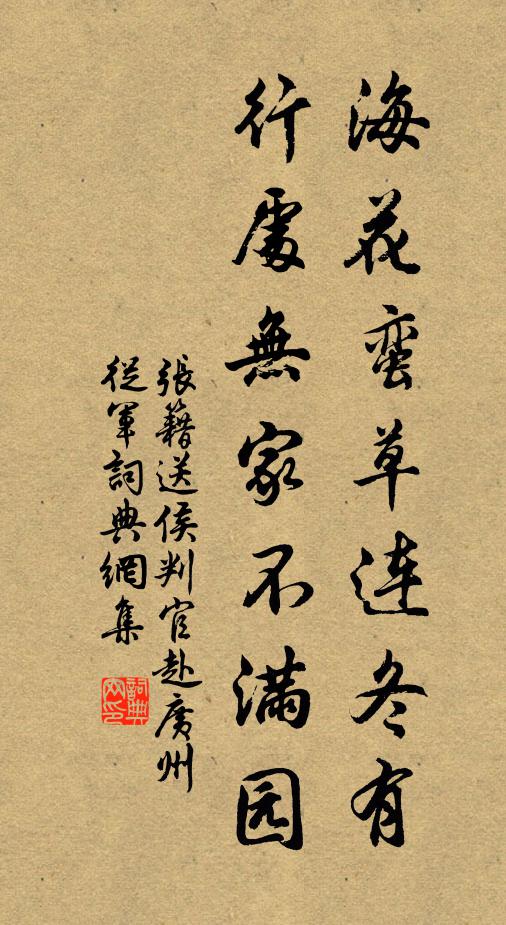 海花蛮草連冬有
行處無家不滿园
張籍送侯判官赴廣州
從軍詞典網集
詞典网印